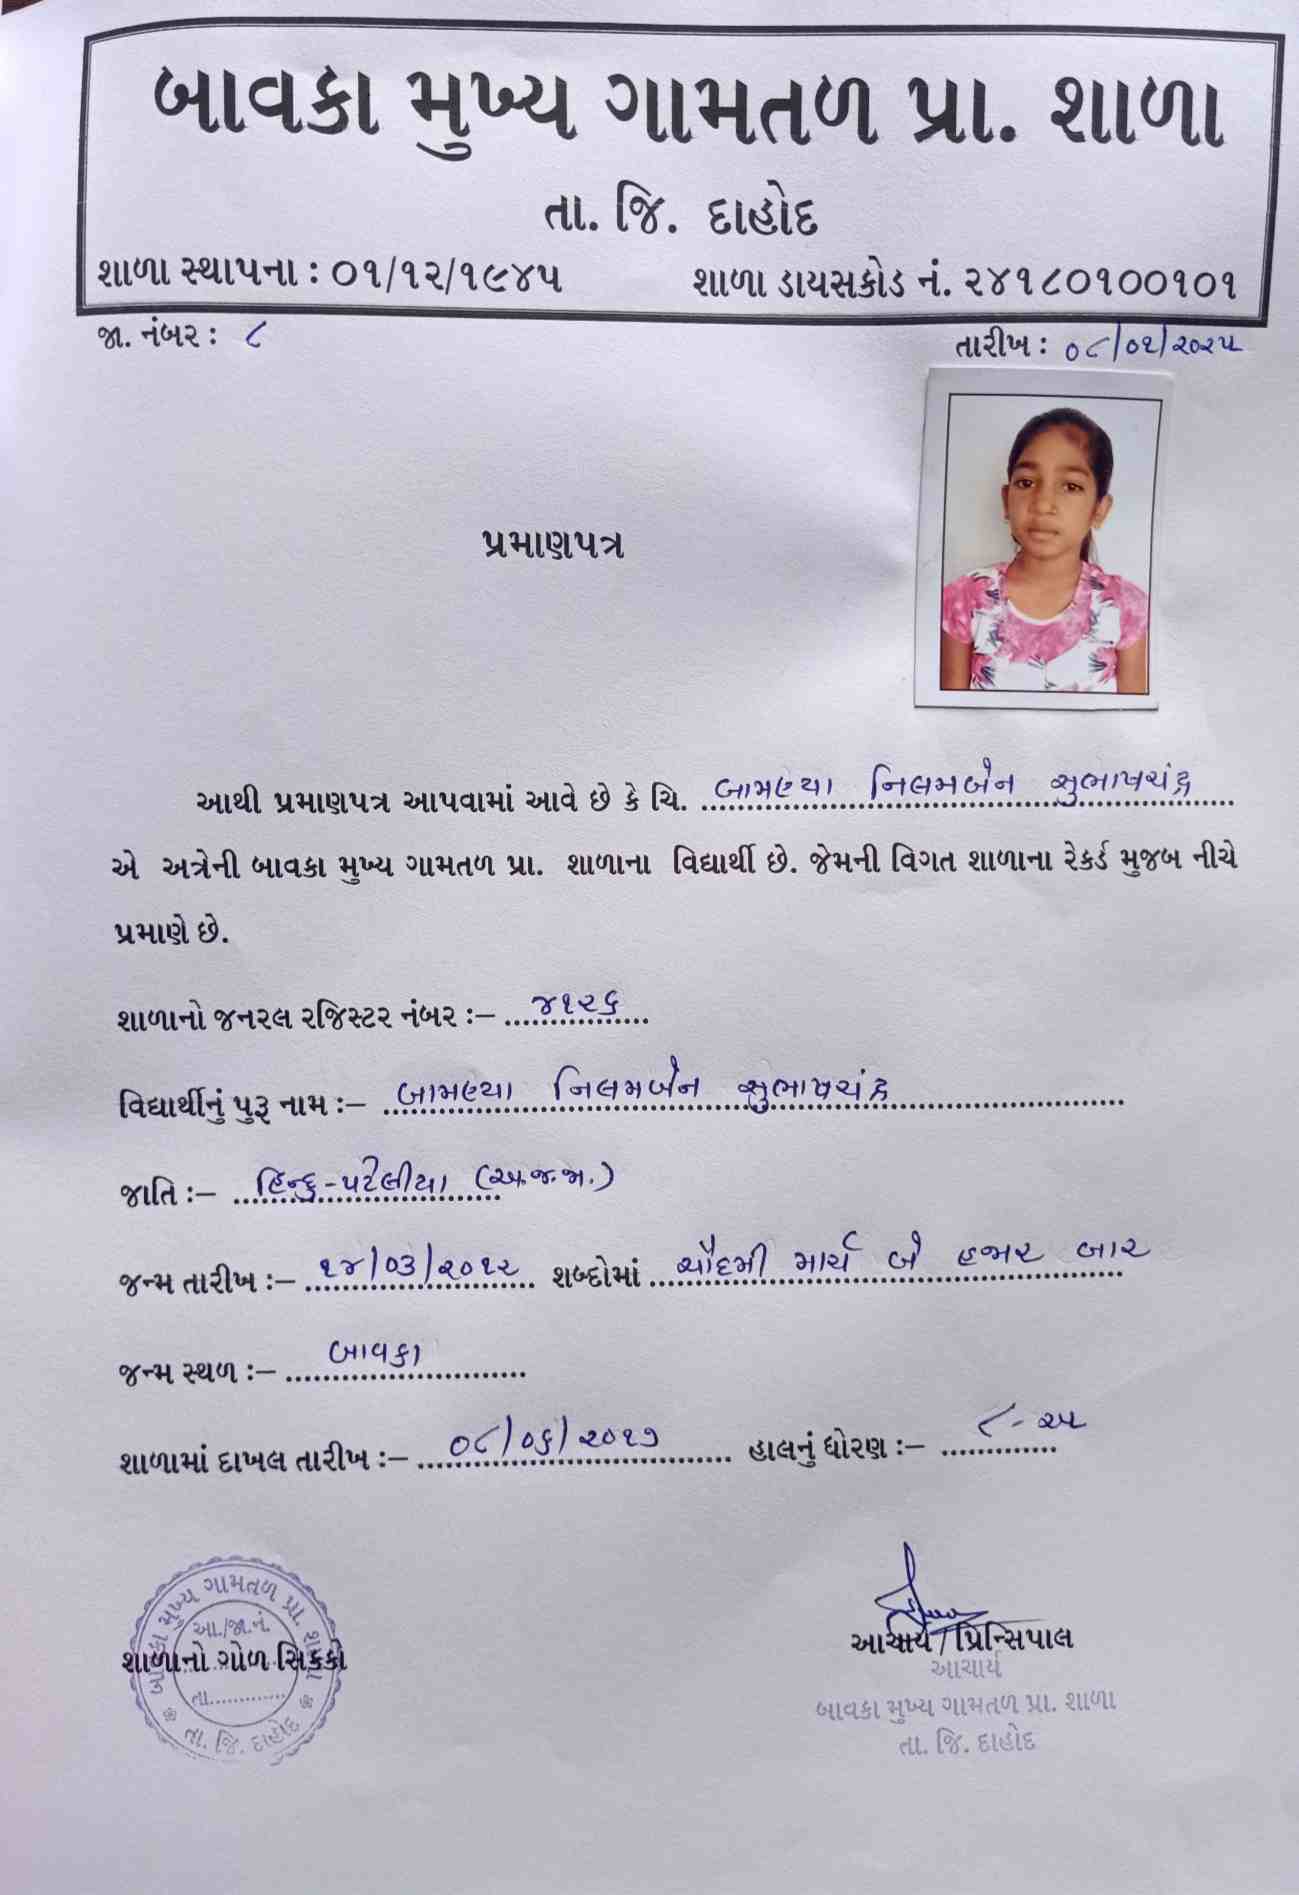 બાવકા મુખ્ય ગામતળ પ્રા. શાળા
તા. જિ. દાહોદ
શાળા સ્થાપના : ૦૧/૧૨/૧૯૪૫ શાળા ડાયસકોડ નં. ૨૪૧૮૦૧૦૦૧૦૧
જા. નંબર : ૮ તારીખ : ૦૮/૦૧/૨૦૨૫
પ્રમાણપત્ર
આથી પ્રમાણપત્ર આપવામાં આવે છે કે ચિ. બામણ્યા નિલમબેન સુભાષચંદ્ર
એ અત્રેની બાવકા મુખ્ય ગામતળ પ્રા. શાળાના વિદ્યાર્થી છે. જેમની વિગત શાળાના રેકર્ડ મુજબ નીચે
પ્રમાણે છે.
શાળાનો જનરલ રજિસ્ટર નંબર :– ૪૧૨૬
વિદ્યાર્થીનું પુરૂ નામ :– બામણ્યા નિલમબેન સુભાષચંદ્ર
જાતિ :– હિન્દુ-પટેલીયા (અ.જ.જા.)
જન્મ તારીખ :– ૧૪/૦૩/૨૦૧૨ શબ્દોમાં ચૌદમી માર્ચ બે હજાર બાર
જન્મ સ્થળ :– બાવકા
શાળામાં દાખલ તારીખ :– ૦૮/૦૬/૨૦૧૭ હાલનું ધોરણ :– ૮-અ
બાવકા મુખ્ય ગામતળ પ્રા. શાળા
આ./જા.નં.
શાળાનો ગોળ સિક્કો
તા.............
તા. જિ. દાહોદ
આચાર્ય / પ્રિન્સિપાલ
આચાર્ય
બાવકા મુખ્ય ગામતળ પ્રા. શાળા
તા. જિ. દાહોદ